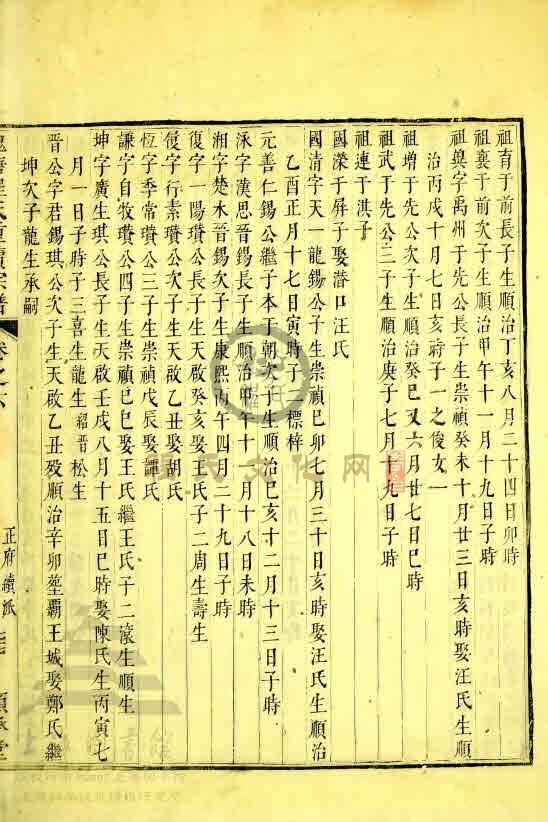 祖育于前長子生順治丁亥八月二十四日卯時
祖襄于前次子生順治甲午十一月十九日子時
祖與字禹州于先公長子生崇禎癸未十月廿三日亥時娶汪氏生順
治丙戌十月七日亥時子一之俊女一
祖增于先公次子生順治癸巳又六月廿七日巳時
祖武于先公三子生順治庚子七月十九日子時
祖連于淇子
國濚于屏子娶潛口汪氏
國清字天一龍錫公子生崇禎己卯七月三十日亥時娶汪氏生順治
乙酉正月十七日寅時子二標梓
元善仁錫公繼子本于朝次子生順治己亥十二月十三日子時
泳字漢思晉錫長子生順治甲午十一月十八日未時
湘字楚木晉錫次子生康熙丙午四月二十九日子時
復字一陽瓚公長子生天啟癸亥娶王氏子二周生壽生
履字行素瓚公次子生天啟乙丑娶胡氏
恆字季常瓚公三子生崇禎戊辰娶譚氏
謙字自牧瓚公四子生崇禎己巳娶王氏繼王氏子二濠生順生
坤字廣生琪公長子生天啟壬戌八月十五日巳時娶陳氏生丙寅七
月一日子時子三喜生龍生紹晉松生
晉公字君錫琪公次子生天啟乙丑歿順治辛卯塟霸王城娶鄭氏繼
坤次子龍生承嗣
氏重續宗譜
卷之六
正府續派
順承堂
氏文化网